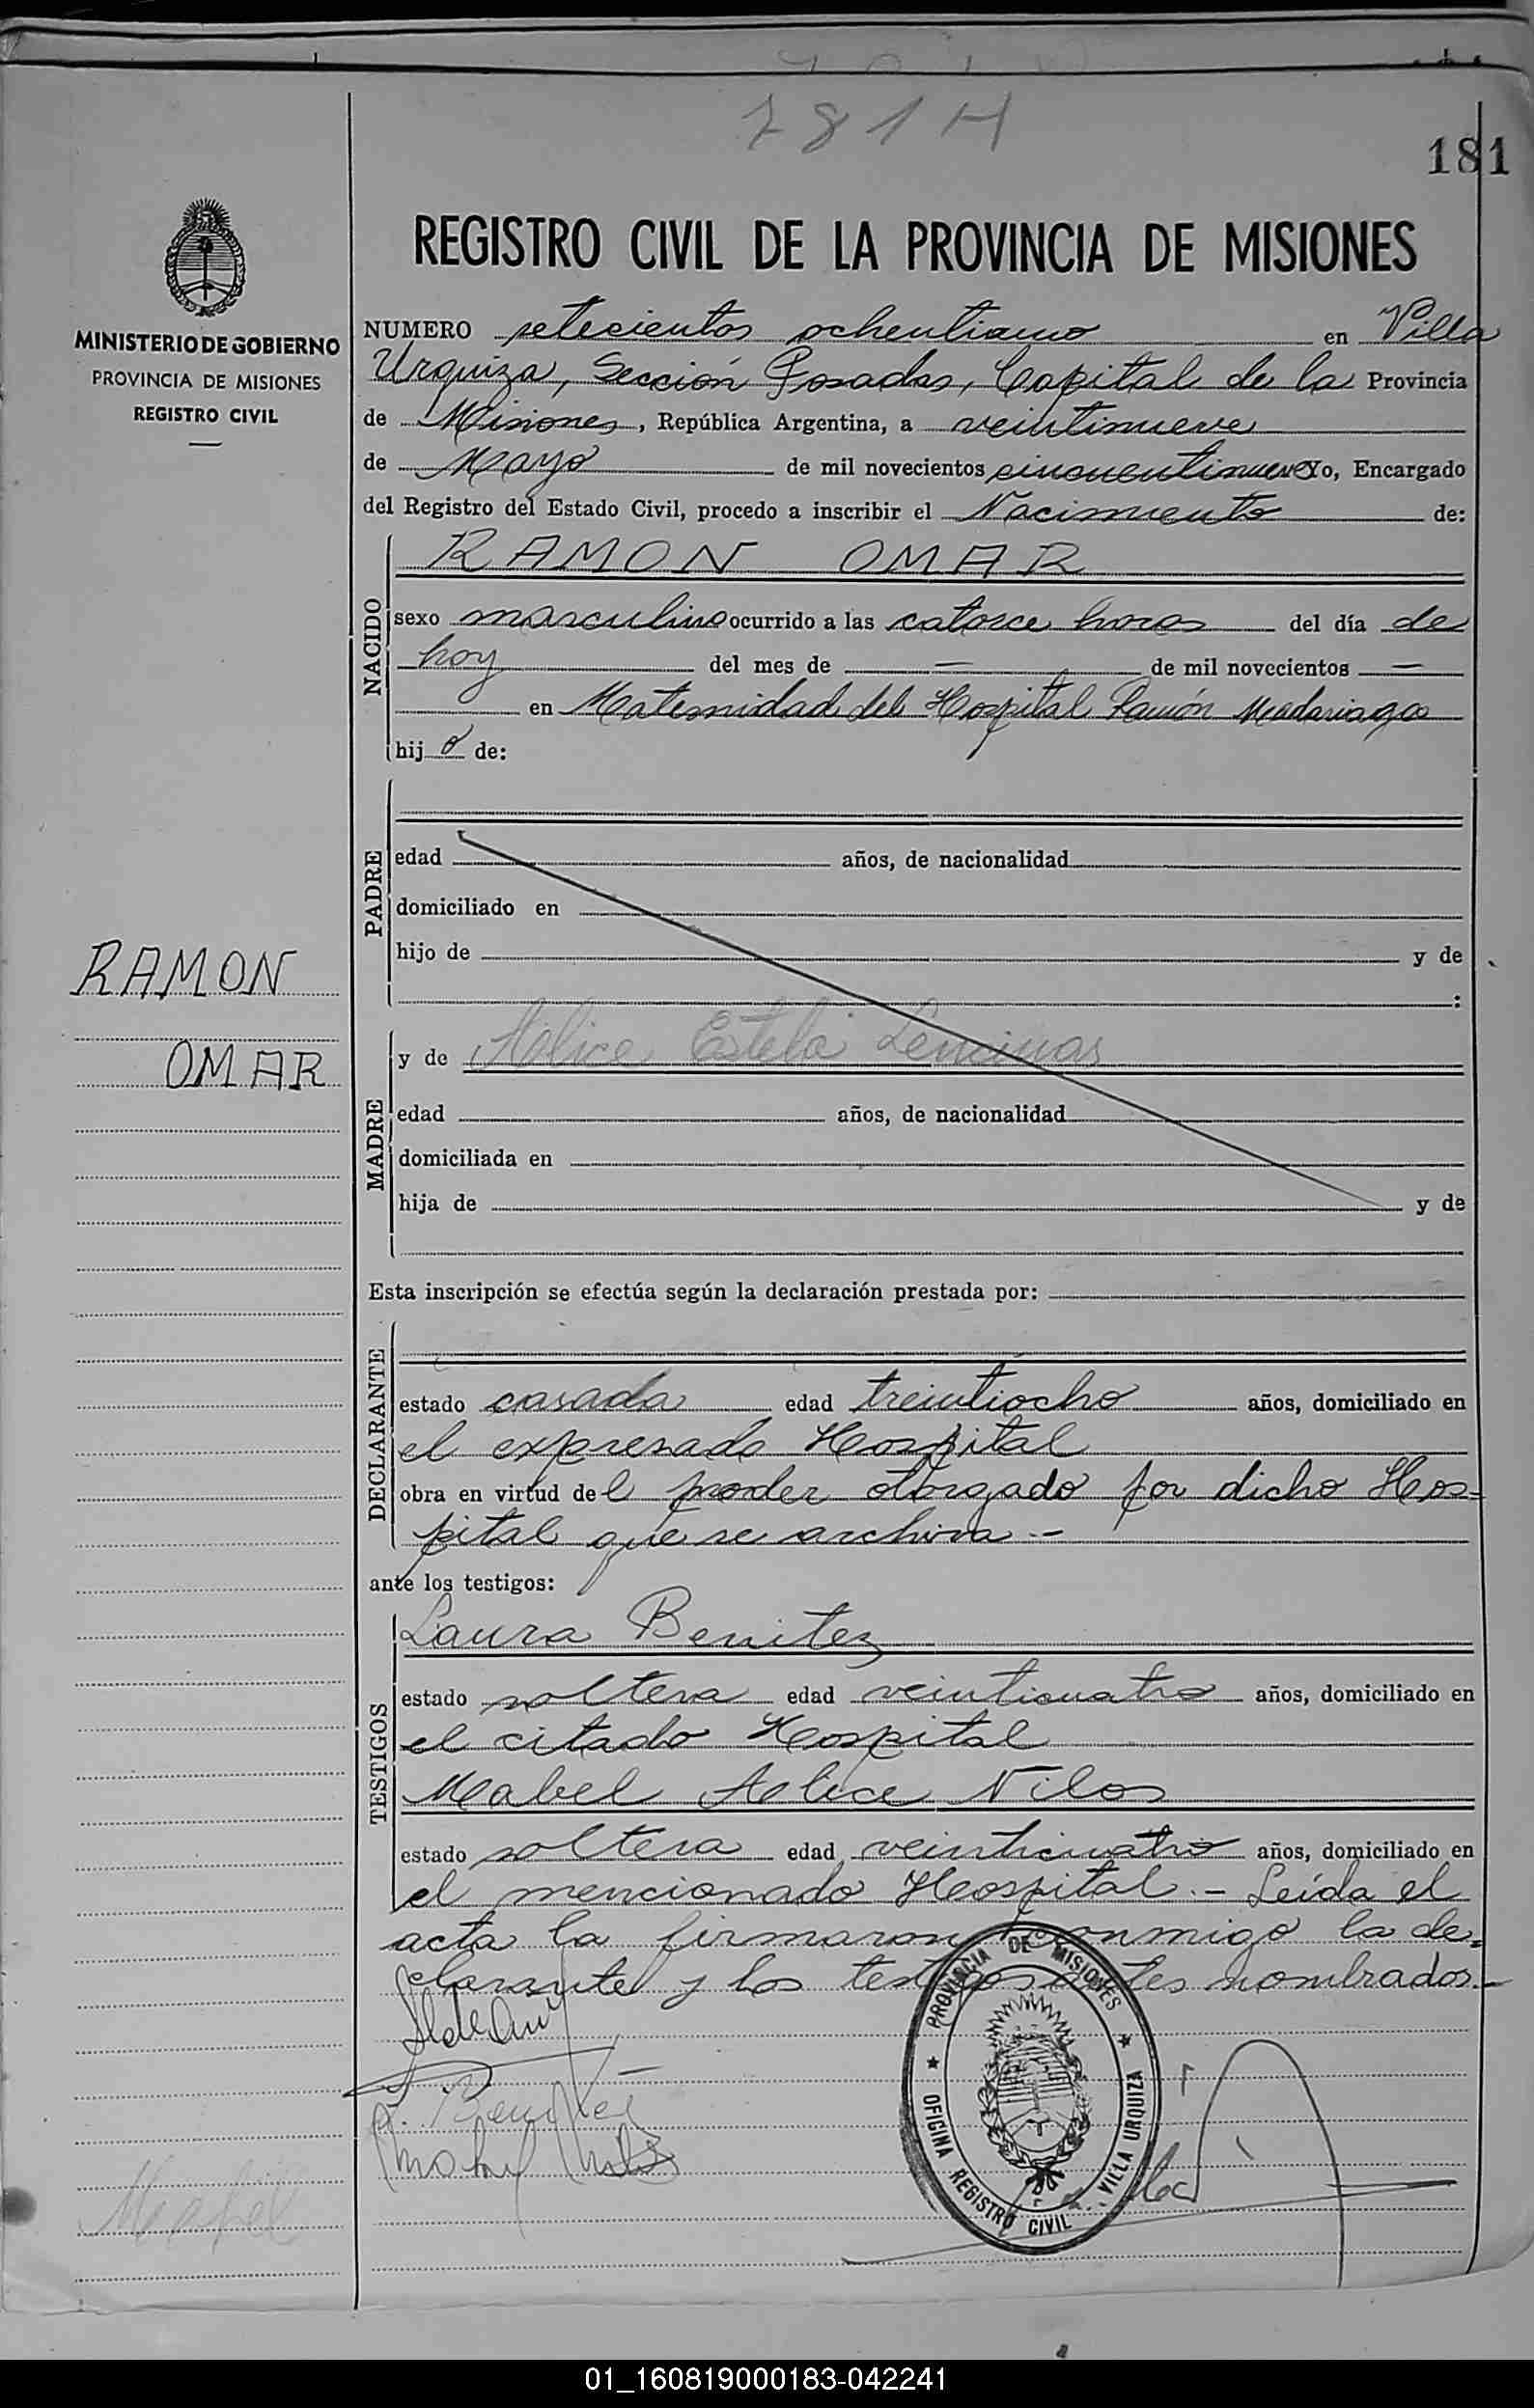 781 H
181
REGISTRO CIVIL DE LA PROVINCIA DE MISIONES
MINISTERIO DE GOBIERNO
PROVINCIA DE MISIONES
REGISTRO CIVIL
NUMERO setecientos ochentiuno en Villa
Urquiza, Sección Posadas, Capital de la Provincia
de Misiones, República Argentina, a veintinueve
de Mayo de mil novecientos cincuentinueve Yo, Encargado
del Registro del Estado Civil, procedo a inscribir el Nacimiento de:
NACIDO
RAMON OMAR
sexo masculino ocurrido a las catorce horas del día de
hoy del mes de — de mil novecientos —
en Maternidad del Hospital Ramón Madariaga
hij o de:
PADRE
edad años, de nacionalidad
domiciliado en
hijo de y de
:
RAMON
OMAR
MADRE
y de Alice Estela Lencinas
edad años, de nacionalidad
domiciliada en
hija de y de
Esta inscripción se efectúa según la declaración prestada por:
DECLARANTE
estado casada edad treintiocho años, domiciliado en
el expresado Hospital
obra en virtud del poder otorgado por dicho Hos=
pital que se archiva.-
ante los testigos:
TESTIGOS
Laura Benitez
estado soltera edad veinticuatro años, domiciliado en
el citado Hospital
Mabel Alice Nilos
estado soltera edad veinticuatro años, domiciliado en
el mencionado Hospital.- Leída el
acta la firmaron conmigo la de=
clarante y los testigos antes nombrados.-
L. Benitez
PROVINCIA DE MISIONES
OFICINA REGISTRO CIVIL VILLA URQUIZA
01_160819000183-042241